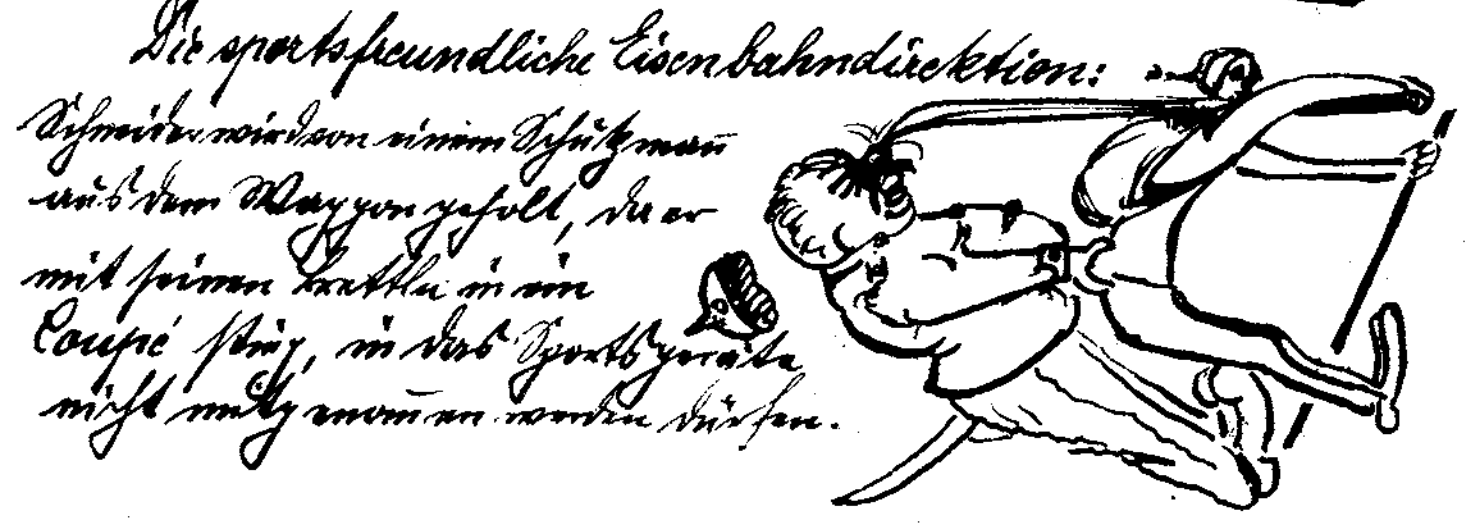 Die sportsfreundliche Eisenbahndirektion:
Schneider wird von einem Schutzmañ
aus dem Waggon geholt, da er
mit seinen Brettln in ein
Coupé stieg, in das Sportsgeräte
nicht mitgenom̄en werden dürfen.